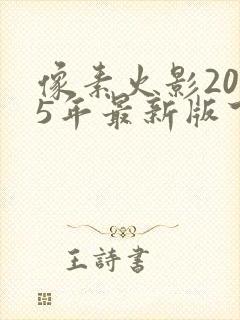 像素火影20
5年最新版
王詩書